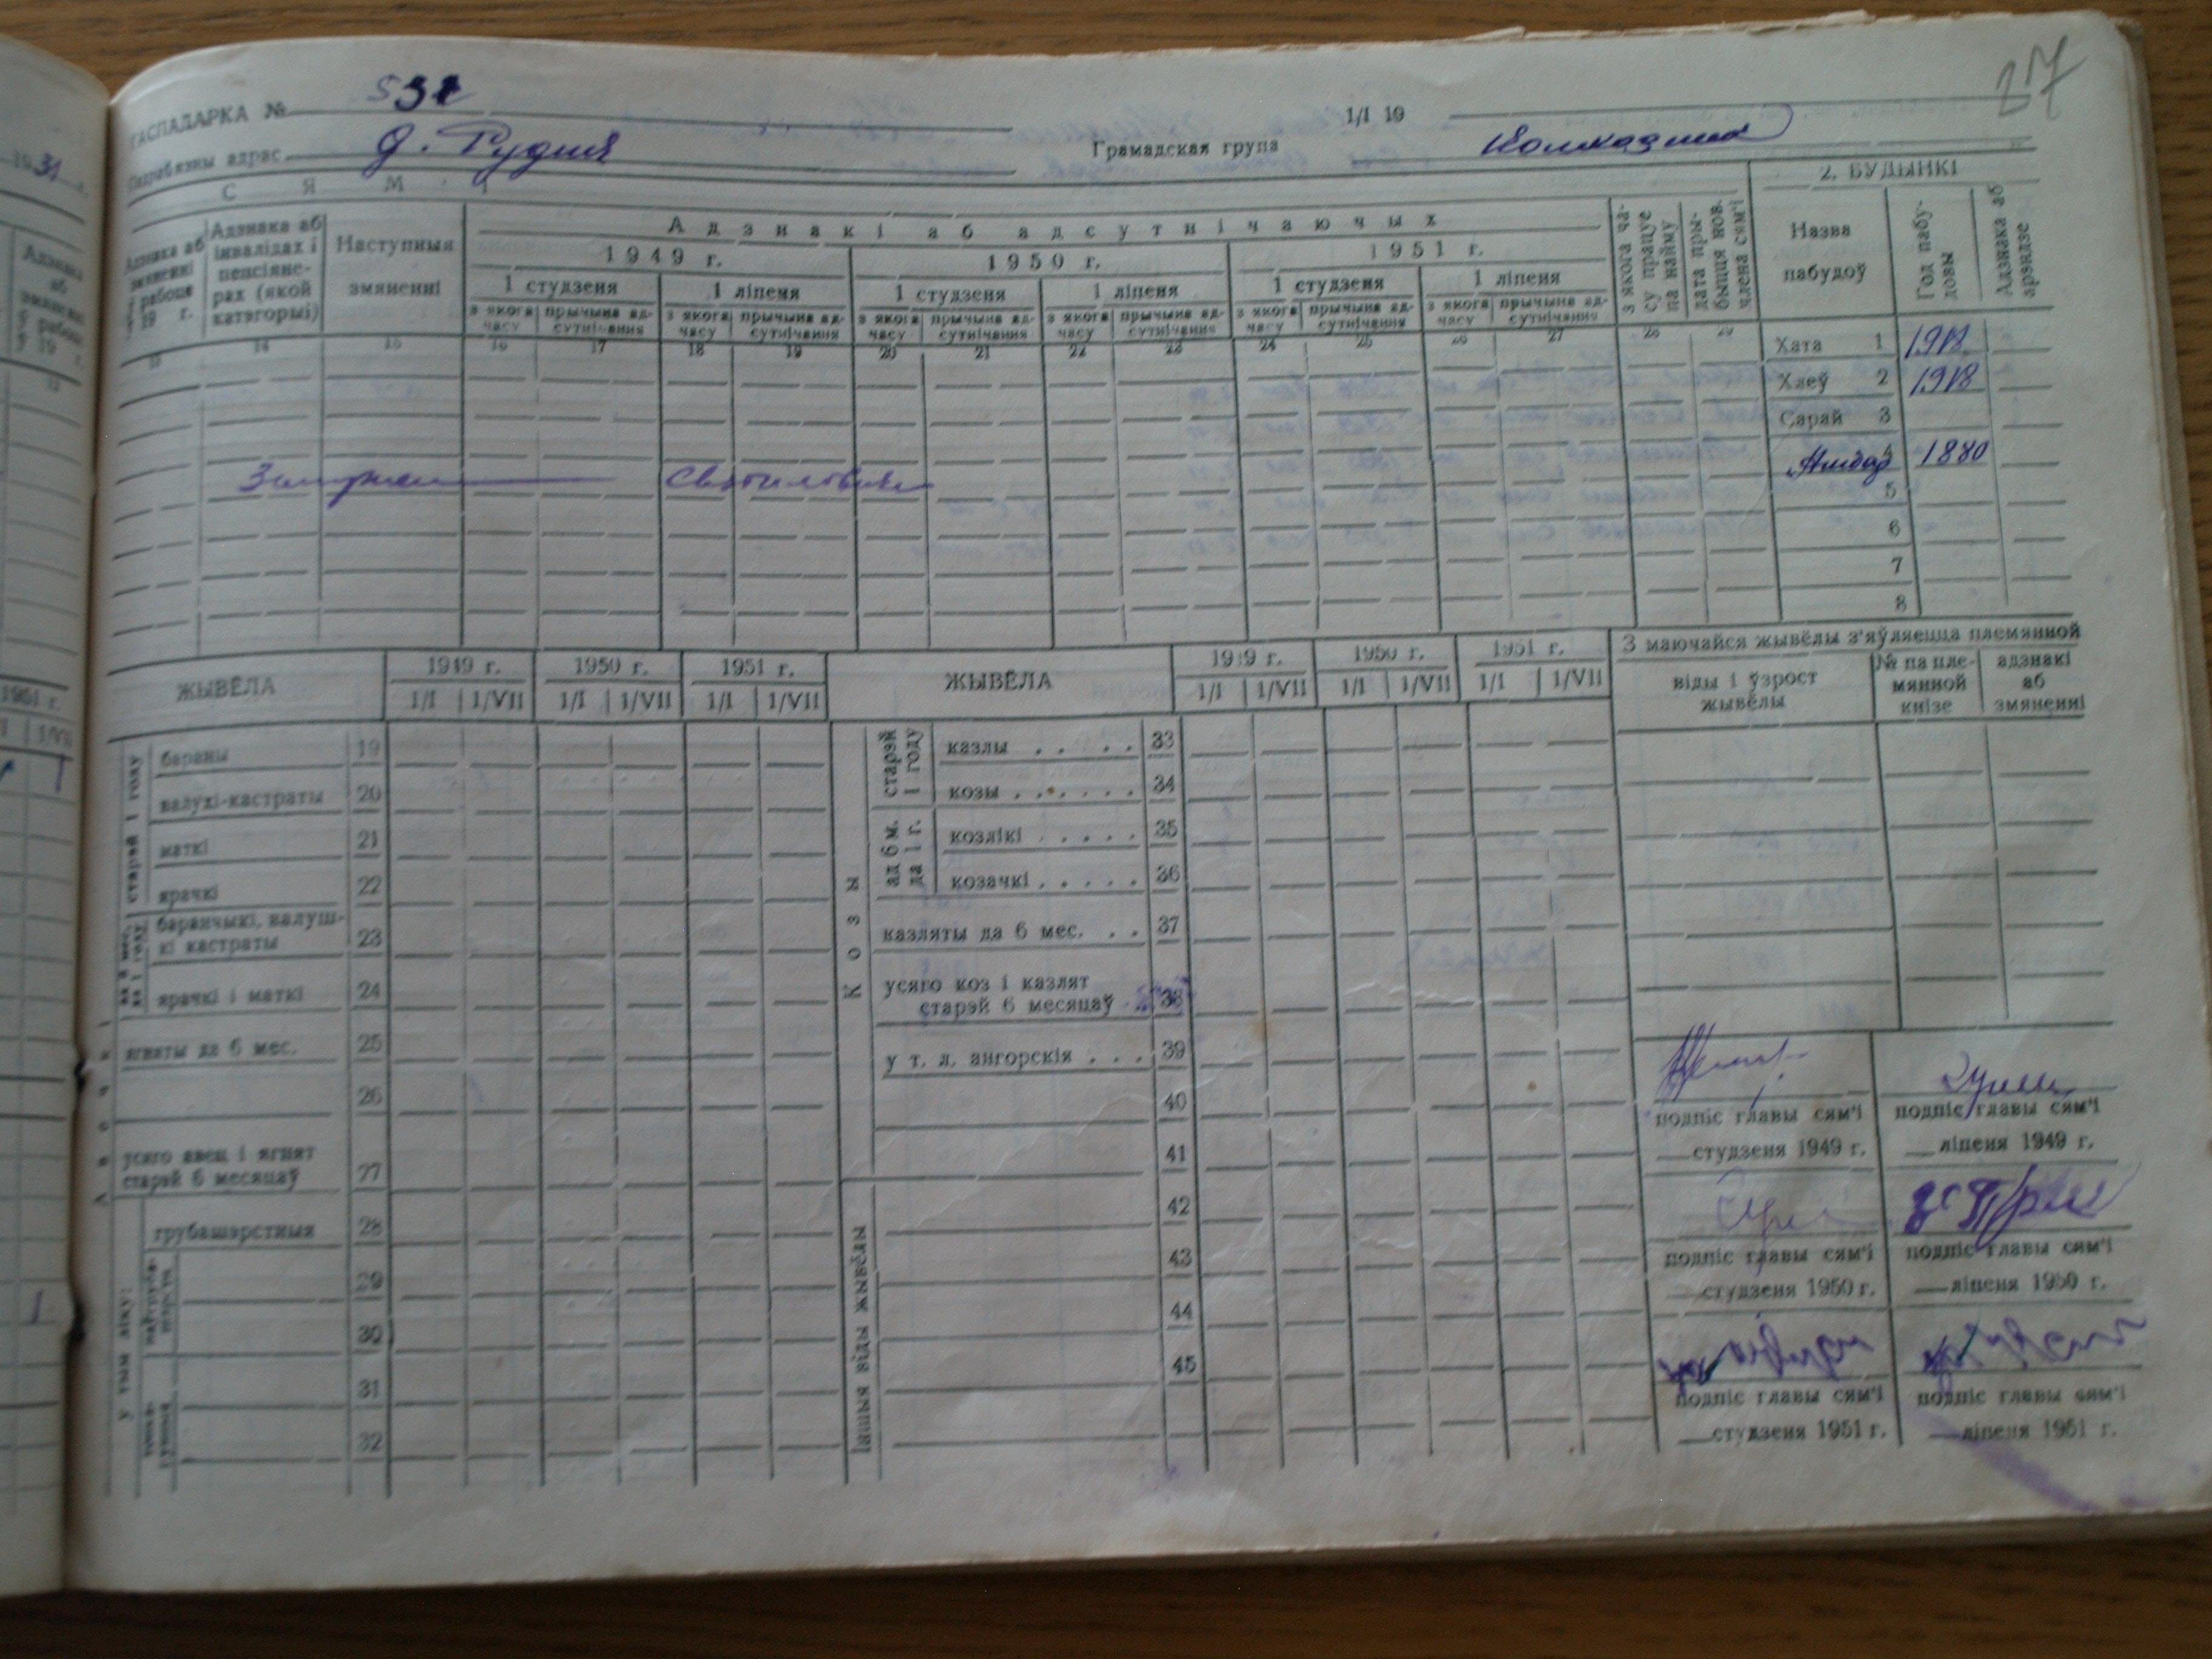 27
ГАСПАДАРКА №
1/I 19
Падрабязны адрас д. Рудня
Грамадская група Колхозник
С Я М ' І
2. БУДЫНКІ
Адзнака аб змяненні ў рабоце 19 г.
Адзнака аб інвалідах і пенсіяне-рах (якой катэгорыі)
Наступныя змяненні
Адзнакі аб адсутнічаючых
1949 г.
1950 г.
1951 г.
1 студзеня
1 ліпеня
1 студзеня
1 ліпеня
1 студзеня
1 ліпеня
з якога часу
прычына ад-сутнічання
з якога часу
прычына ад-сутнічання
з якога часу
прычына ад-сутнічання
з якога часу
прычына ад-сутнічання
з якога часу
прычына ад-сутнічання
з якога часу
прычына ад-сутнічання
з якога ча-су працуе па найму
дата пры-быцця нов. члена сям'і
Назва пабудоў
Год пабу-довы
Адзнака аб арэндзе
13 14 15 16 17 18 19 20 21 22 23 24 25 26 27 28 29
Хата 1 1918
Хлеў 2 1918
Сарай 3
4 1880
5
6
7
8
ЖЫВЁЛА
1949 г.
1950 г.
1951 г.
1/I 1/VII 1/I 1/VII 1/I 1/VII
ЖЫВЁЛА
1949 г.
1950 г.
1951 г.
1/I 1/VII 1/I 1/VII 1/I 1/VII
З маючайся жывёлы з'яўляецца племянной
віды і ўзрост жывёлы
№ па пле-мянной кнізе
адзнакі аб змяненні
старэй 1 году
бараны 19
валухі-кастраты 20
маткі 21
ярачкі 22
баранчыкі, валуш-
кі кастраты 23
ярачкі і маткі 24
ягняты да 6 мес. 25
26
усяго авец і ягнят
старэй 6 месяцаў 27
у тым ліку:
грубашэрстныя 28
29
30
31
32
Козы
старэй 1 году
казлы . . . . . 33
козы . . . . . . 34
ад 6 м. да 1 г.
козлікі . . . . . 35
козачкі . . . . . 36
казляты да 6 мес. . . 37
усяго коз і казлят
старэй 6 месяцаў 38
у т. л. ангорскія . . . 39
40
41
Іншыя віды жывёлы
42
43
44
45
подпіс главы сям'і
студзеня 1949 г.
подпіс главы сям'і
ліпеня 1949 г.
подпіс главы сям'і
студзеня 1950 г.
подпіс главы сям'і
ліпеня 1950 г.
подпіс главы сям'і
студзеня 1951 г.
подпіс главы сям'і
ліпеня 1951 г.